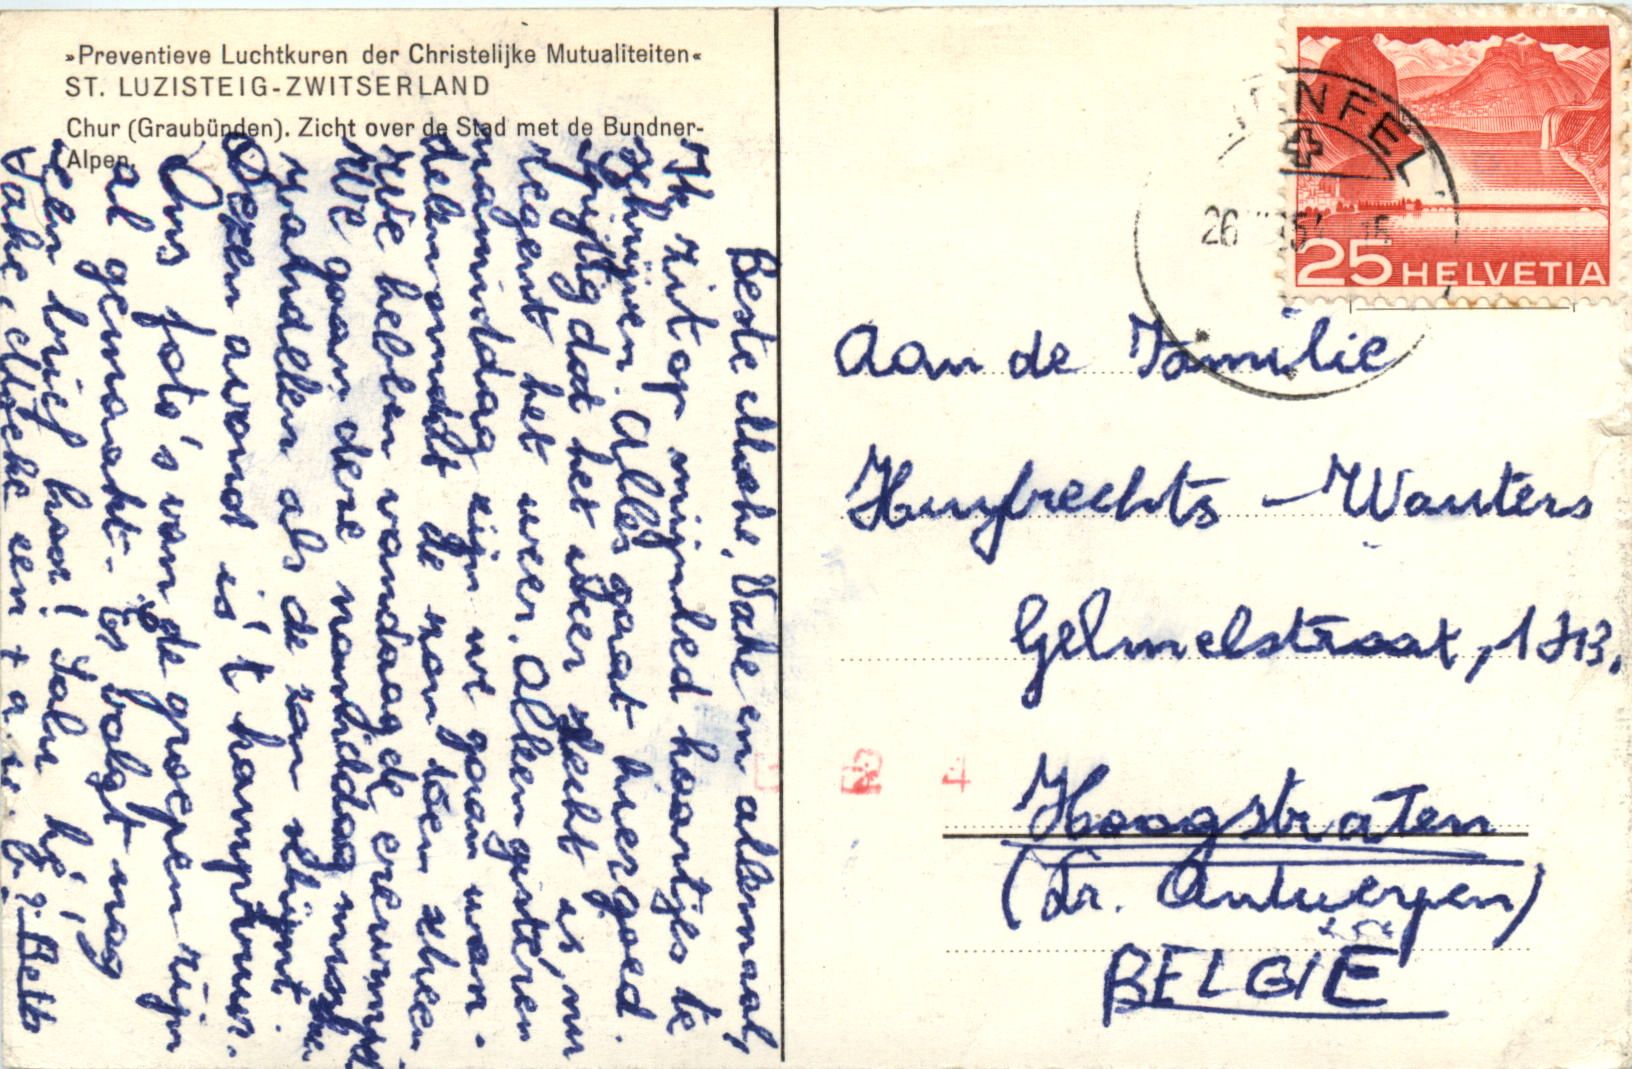 »Preventieve Luchtkuren der Christelijke Mutualiteiten«
ST. LUZISTEIG-ZWITSERLAND
Chur (Graubünden). Zicht over de Stad met de Bundner-
Alpen.
Beste Moeke, Vake en allemaal,
Ik zit op mijn bed kaartjes te
schrijven. Alles gaat hier goed.
Spijtig dat het weer slecht is, nu
regent het weer. Alleen gisteren
namiddag zijn we gaan wan-
delen omdat de zon toen scheen
We hebben vandaag de
We gaan deze namiddag misschien
wandelen als de zon schijnt
Dezen avond is 't kampvuur.
Ons foto's van de groepen zijn
al gemaakt. Er volgt nog
een brief hoor! Salu hé!
Vake, Moeke en
HELVETIA
25
26
Aan de Familie
Huybrechts - Wauters
Gelmelstraat,
4
Hoogstraten
(Pr. Antwerpen)
BELGIE